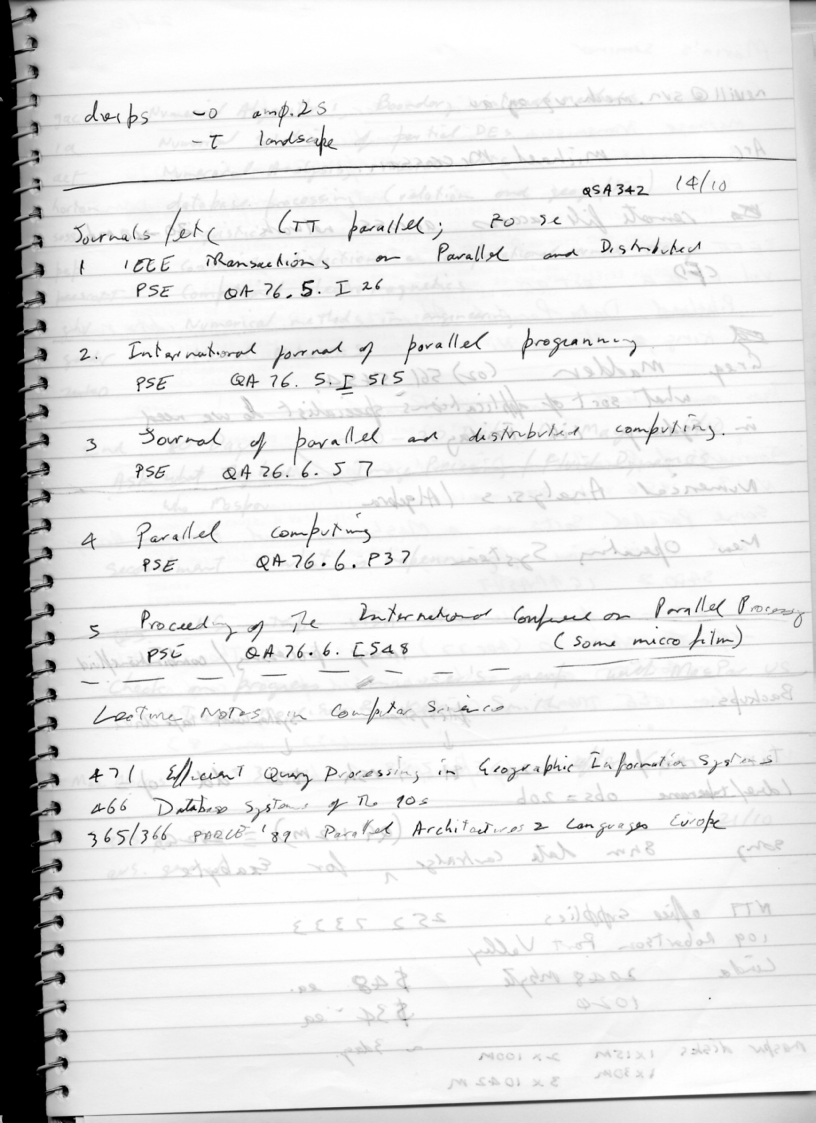 dvips -o amp.2s
-T landscape
QSA342 14/10
Journals /etc (TT parallel;
1 IEEE Transactions on Parallel and Distributed
PSE QA 76. 5. I 26
2. International journal of parallel programming
PSE QA 76. 5. I 515
3 Journal of parallel and distributed computing.
PSE QA 76. 6. 5 7
4 Parallel computing
PSE QA 76. 6. P37
5 Proceeding of The International Conference on Parallel Processing
PSE QA 76. 6. I548 (some micro film)
Lecture Notes in Computer Science
471 Efficient Query Processing in Geographic Information Systems
466 Database Systems of The 90s
365/366 PARLE '89 Parallel Architectures & Languages Europe